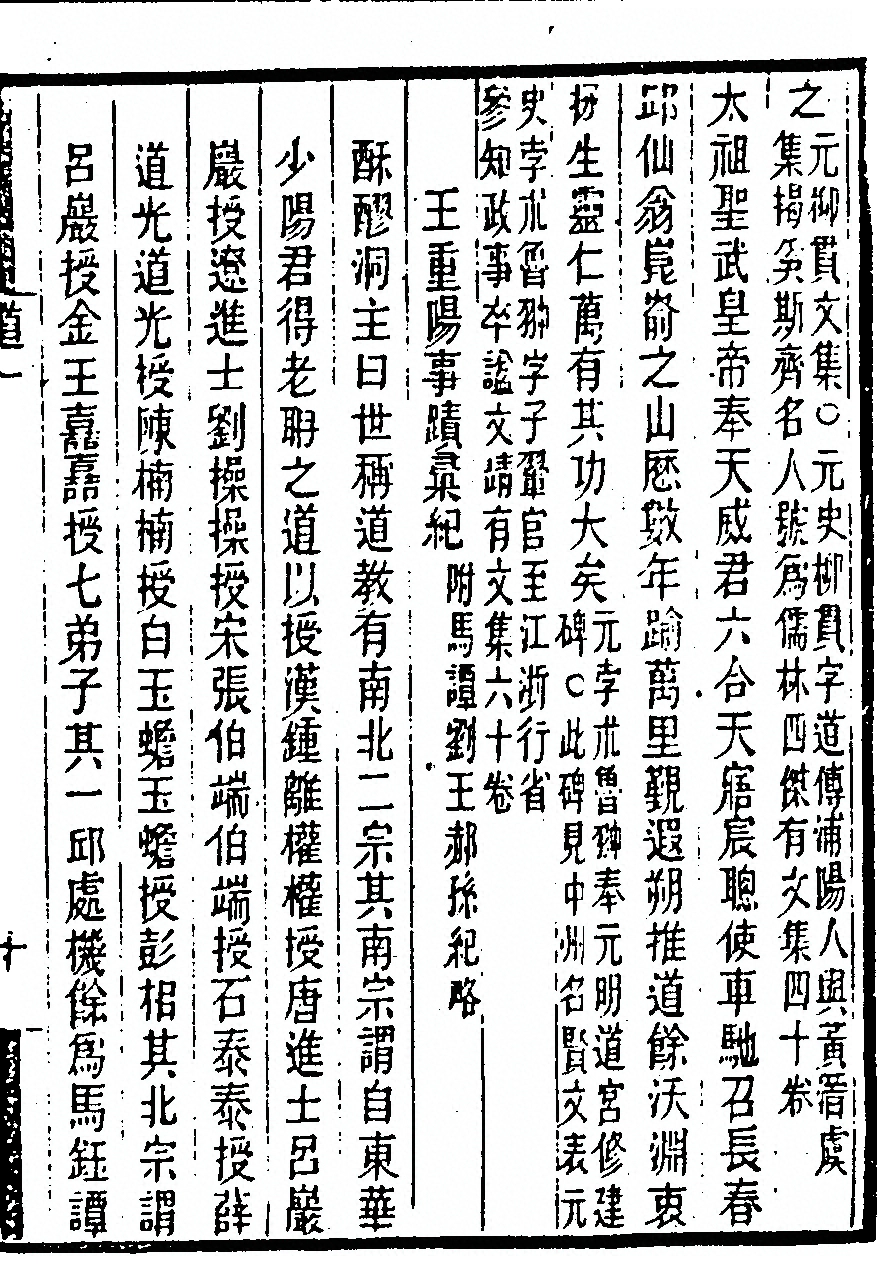 之元柳貫文集○元史柳貫字道傳浦陽人與黃溍虞
集揭傒斯齊名人號爲儒林四傑有文集四十卷
太祖聖武皇帝奉天威君六合天寤宸聰使車馳召長春
邱仙翁崑崳之山歷數年踰萬里覲遐朔推道餘沃淵衷
拯生靈仁萬有其功大矣元孛朮魯翀奉元明道宮修建
碑○此碑見中州名賢文表元
史孛朮魯翀字子翬官至江浙行省
參知政事卒諡文靖有文集六十卷
王重陽事蹟彙紀附馬譚劉王郝孫紀略
酥醪洞主曰世稱道教有南北二宗其南宗謂自東華
少陽君得老耼之道以授漢鍾離權權授唐進士呂巖
巖授遼進士劉操操授宋張伯端伯端授石泰泰授薛
道光道光授陳楠楠授白玉蟾玉蟾授彭相其北宗謂
呂巖授金王嚞嚞授七弟子其一邱處機餘爲馬鈺譚
道一
十